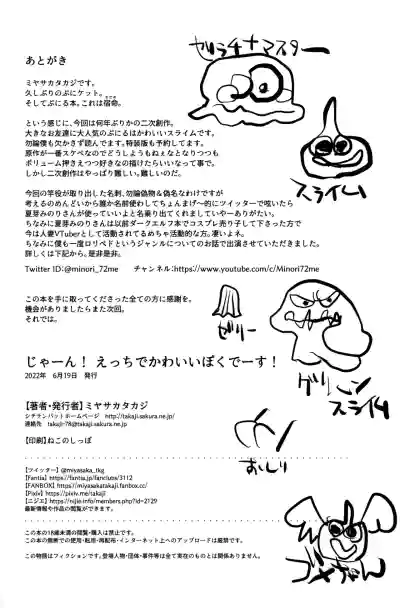 ゼラチナマスター
あとがき
ミヤサカタカジです。
久しぶりのぷにケット。
そしてぷにる本。これは宿命。
という感じに、今回は何年ぶりかの二次創作。
大きなお友達に大人気のぷにるはかわいいスライムです。
勿論僕も欠かさず読んでます。特装版も予約してます。
原作が一番スケベなのでどうしようもねぇなとなりつつも
ボリューム押さえつつ好きなの描けたらいいなって事で。
しかし二次創作はやっぱり難しい。難しいのだ。
スライム
今回の竿役が取り出した名刺、勿論偽物&偽名なわけですが
考えるのめんどいから誰か名前使わしてちょんまげ〜的にツイッターで呟いたら
夏芽みのりさんが使っていいよと名乗り出てくれましていやーありがたい。
ちなみに夏芽みのりさんは以前ダークエルフ本でコスプレ売り子して下さった方で
今は人妻VTuberとして活動されてるめちゃ活動的な方。凄いよネ。
ちなみに僕も一度ロリペドというジャンルについてのお話で出演させていただきました。
詳しくは下記から。是非是非。
Twitter ID:@minori_72me　　チャンネル:https://www.youtube.com/c/Minori72me
この本を手に取ってくださった全ての方に感謝を。
機会がありましたらまた次回。
それでは。
ゼリー
じゃーん！ えっちでかわいいぼくでーす！
2022年　6月19日　発行
スライム
【著者・発行者】ミヤサカタカジ
シチテンバットホームページ　http://takaji.sakura.ne.jp/
連絡先　takaji-78@takaji.sakura.ne.jp
【印刷】ねこのしっぽ
おしり
【ツイッター】@miyasaka_tkg
【Fantia】https://fantia.jp/fanclubs/3112
【FANBOX】https://miyasakatakaji.fanbox.cc/
【Pixiv】https://pixiv.me/takaji
【ニジエ】https://nijie.info/members.php?id=2129
最新情報や作品の閲覧ができます。
この本の18歳未満の閲覧・購入は禁止です。
この本の無断での使用・転用・再配布・インターネット上へのアップロードは厳禁です。
この物語はフィクションです。登場人物・団体・事件等は全て実在のものとは関係ありません。
ゴメちゃん